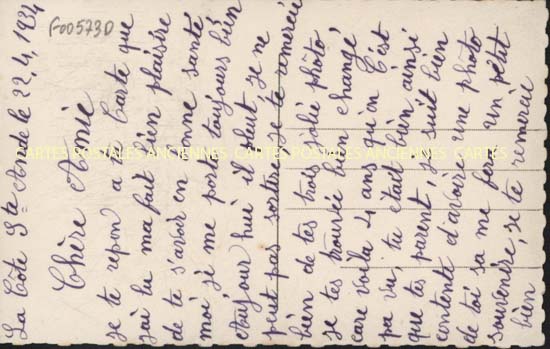 F005730
La Côte St André le 22.4.1934
Chère Amie
je te repon a ta Carte que
j'ai tu ma fait bien plaisire
de te s'avoir en bonne santé
moi si me porte toujours bién
Aujour hui il pleut je ne
peut pas sortire je te remerci
bien de tes trois jolie photo
je tes trouvée bien changé
care voila 4 ans qu'on c'est
pa vu, tu était bien ainsi
que tes parent, je suit bien
contente d'avoir une photo
de toi sa me fera un petit
souvenire, je te remercie
bien
CARTES POSTALES ANCIENNES CARTES POSTALES ANCIENNES CARTES